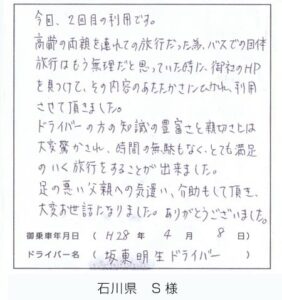 今回、2回目の利用です。
高齢の両親を連れての旅行だった為、バスでの団体
旅行はもう無理だと思っていた時に、御社のHP
を見つけて、その内容のあたたかさにひかれ、利用
させて頂きました。
ドライバーの方の知識の豊富さと親切さには
大変驚かされ、時間の無駄もなく、とても満足
のいく旅行をすることが出来ました。
足の悪い父親への気遣い、介助もして頂き、
大変お世話になりました。ありがとうございました。
御乗車年月日 ( H28 年 4 月 8 日)
ドライバー名 ( 坂東明生ドライバー )
石川県 S 様